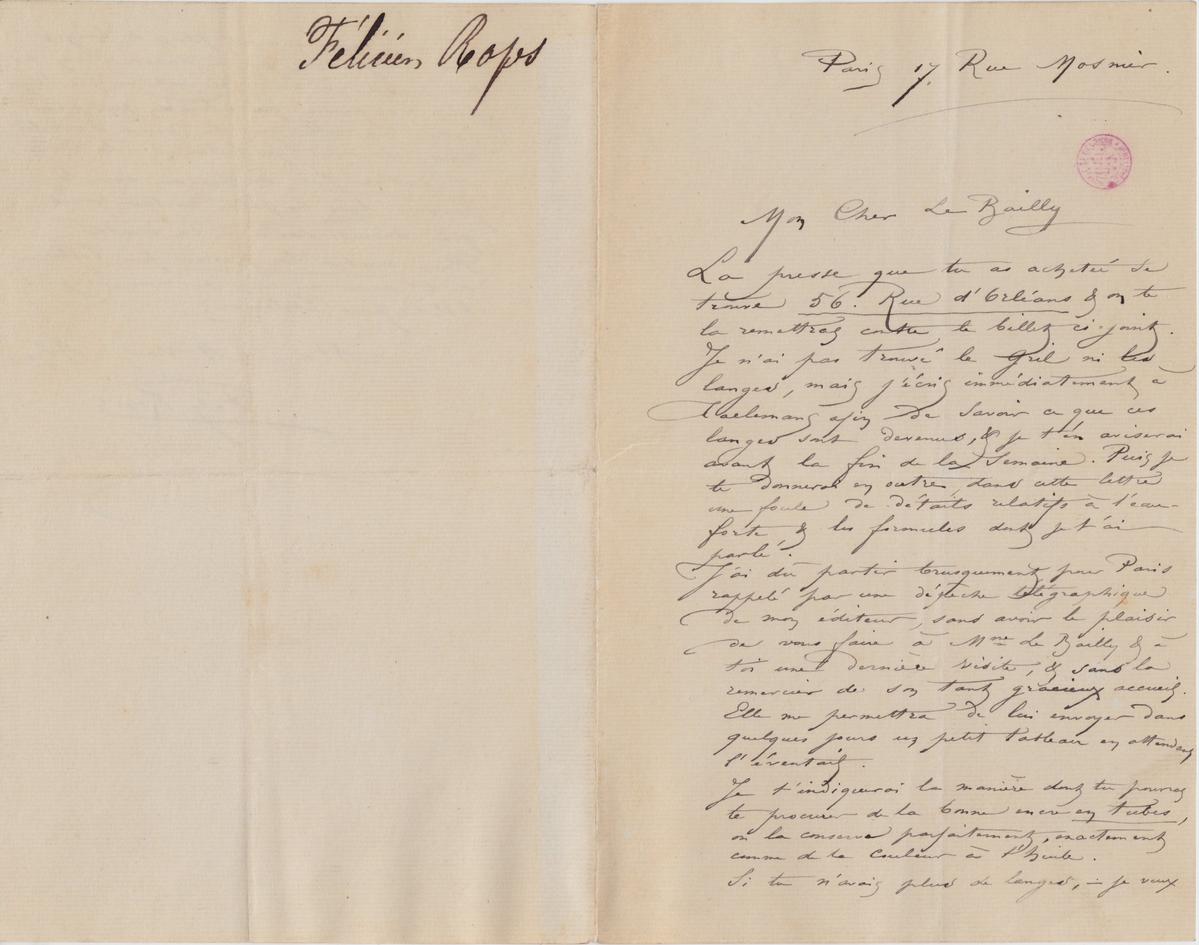 Félicien Rops
Paris 17. Rue Mosnier.
Mon Cher Le Bailly
La presse que tu as achetée se
trouve 56. Rue d'Orléans & on te
la remettra contre le billet ci-joint.
Je n'ai pas trouvé le Gril ni les
langes, mais j'écris immédiatement à
Taelemans afin de savoir ce que ces
langes sont devenus, & je t'en aviserai
avant la fin de la semaine. Puis je
te donnerai en outre dans cette lettre
une foule de détails relatifs à l'eau-
forte & les formules dont je t'ai
parlé.
J'ai dû partir brusquement pour Paris
rappelé par une dépêche télégraphique
de mon éditeur, sans avoir le plaisir
de vous faire à Mme Le Bailly & à
toi une dernière visite, & sans la
remercier de son tant gracieux accueil.
Elle me permettra de lui envoyer dans
quelques jours un petit tableau en attendant
l'éventail.
Je t'indiquerai la manière dont tu pourras
te procurer de la bonne encre en tubes,
on la conserve parfaitement, exactement
comme de la couleur à l'huile.
Si tu n'avais plus de langes, – je veux